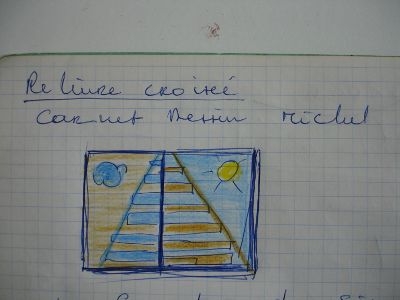 Reliure croisé
Carnet Dessin Michel